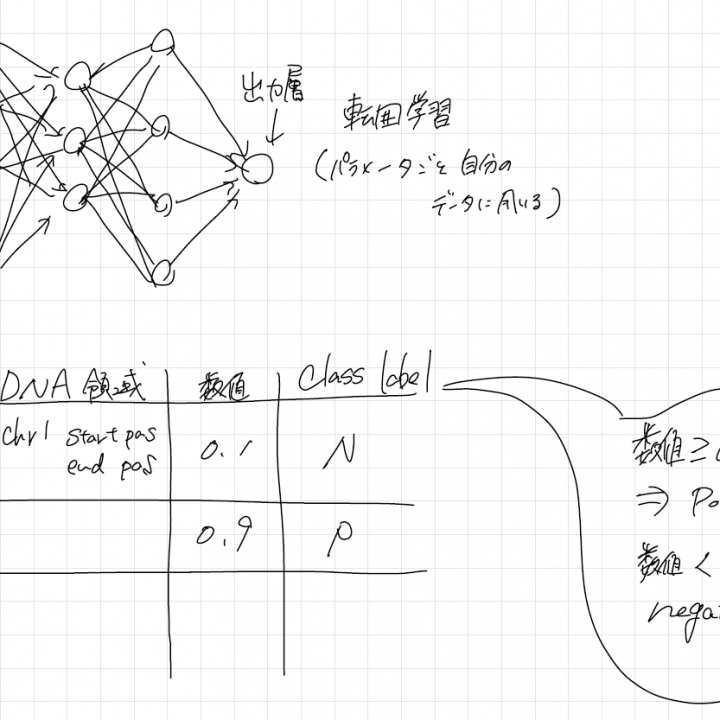 出力層
転回学習
(パラメータごと自分の
データに用いる)
DNA 領域 数値 Class label
Chr1 start pos 0.1 N
end pos
0.9 P
数値 ≥
⇒ Po
数値 <
negat